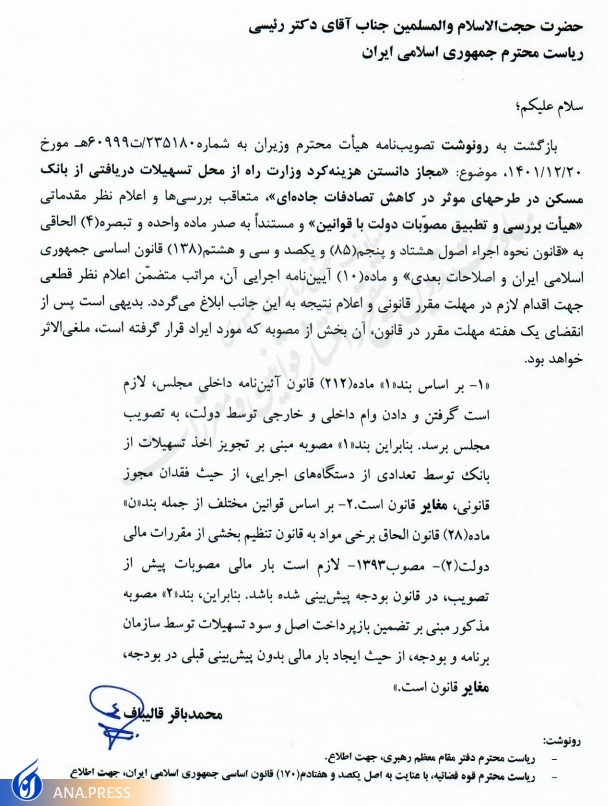 حضرت حجت‌الاسلام والمسلمین جناب آقای دکتر رئیسی
ریاست محترم جمهوری اسلامی ایران
سلام علیکم؛
بازگشت به رونوشت تصویب‌نامه هیأت محترم وزیران به شماره۲۳۵۱۸۰/ت۶۰۹۹۹هـ مورخ
۱۴۰۱/۱۲/۲۰، موضوع: «مجاز دانستن هزینه‌کرد وزارت راه از محل تسهیلات دریافتی از بانک
مسکن در طرحهای موثر در کاهش تصادفات جاده‌ای»، متعاقب بررسی‌ها و اعلام نظر مقدماتی
«هیأت بررسی و تطبیق مصوّبات دولت با قوانین» و مستنداً به صدر ماده واحده و تبصره(۴) الحاقی
به «قانون نحوه اجراء اصول هشتاد و پنجم(۸۵) و یکصد و سی و هشتم(۱۳۸) قانون اساسی جمهوری
اسلامی ایران و اصلاحات بعدی» و ماده(۱۰) آیین‌نامه اجرایی آن، مراتب متضمّن اعلام نظر قطعی
جهت اقدام لازم در مهلت مقرر قانونی و اعلام نتیجه به این جانب ابلاغ می‌گردد. بدیهی است پس از
انقضای یک هفته مهلت مقرر در قانون، آن بخش از مصوبه که مورد ایراد قرار گرفته است، ملغی‌الاثر
خواهد بود.
«۱- بر اساس بند«۱» ماده(۲۱۲) قانون آئین‌نامه داخلی مجلس، لازم
است گرفتن و دادن وام داخلی و خارجی توسط دولت، به تصویب
مجلس برسد. بنابراین بند«۱» مصوبه مبنی بر تجویز اخذ تسهیلات از
بانک توسط تعدادی از دستگاه‌های اجرایی، از حیث فقدان مجوز
قانونی، مغایر قانون است.۲- بر اساس قوانین مختلف از جمله بند«ن»
ماده(۲۸) قانون الحاق برخی مواد به قانون تنظیم بخشی از مقررات مالی
دولت(۲)- مصوب۱۳۹۳- لازم است بار مالی مصوبات پیش از
تصویب، در قانون بودجه پیش‌بینی شده باشد. بنابراین، بند«۲» مصوبه
مذکور مبنی بر تضمین بازپرداخت اصل و سود تسهیلات توسط سازمان
برنامه و بودجه، از حیث ایجاد بار مالی بدون پیش‌بینی قبلی در بودجه،
مغایر قانون است.»
محمدباقر قالیباف
رونوشت:
- ریاست محترم دفتر مقام معظم رهبری، جهت اطلاع.
- ریاست محترم قوه قضائیه، با عنایت به اصل یکصد و هفتادم(۱۷۰) قانون اساسی جمهوری اسلامی ایران، جهت اطلاع
ANA.PRESS